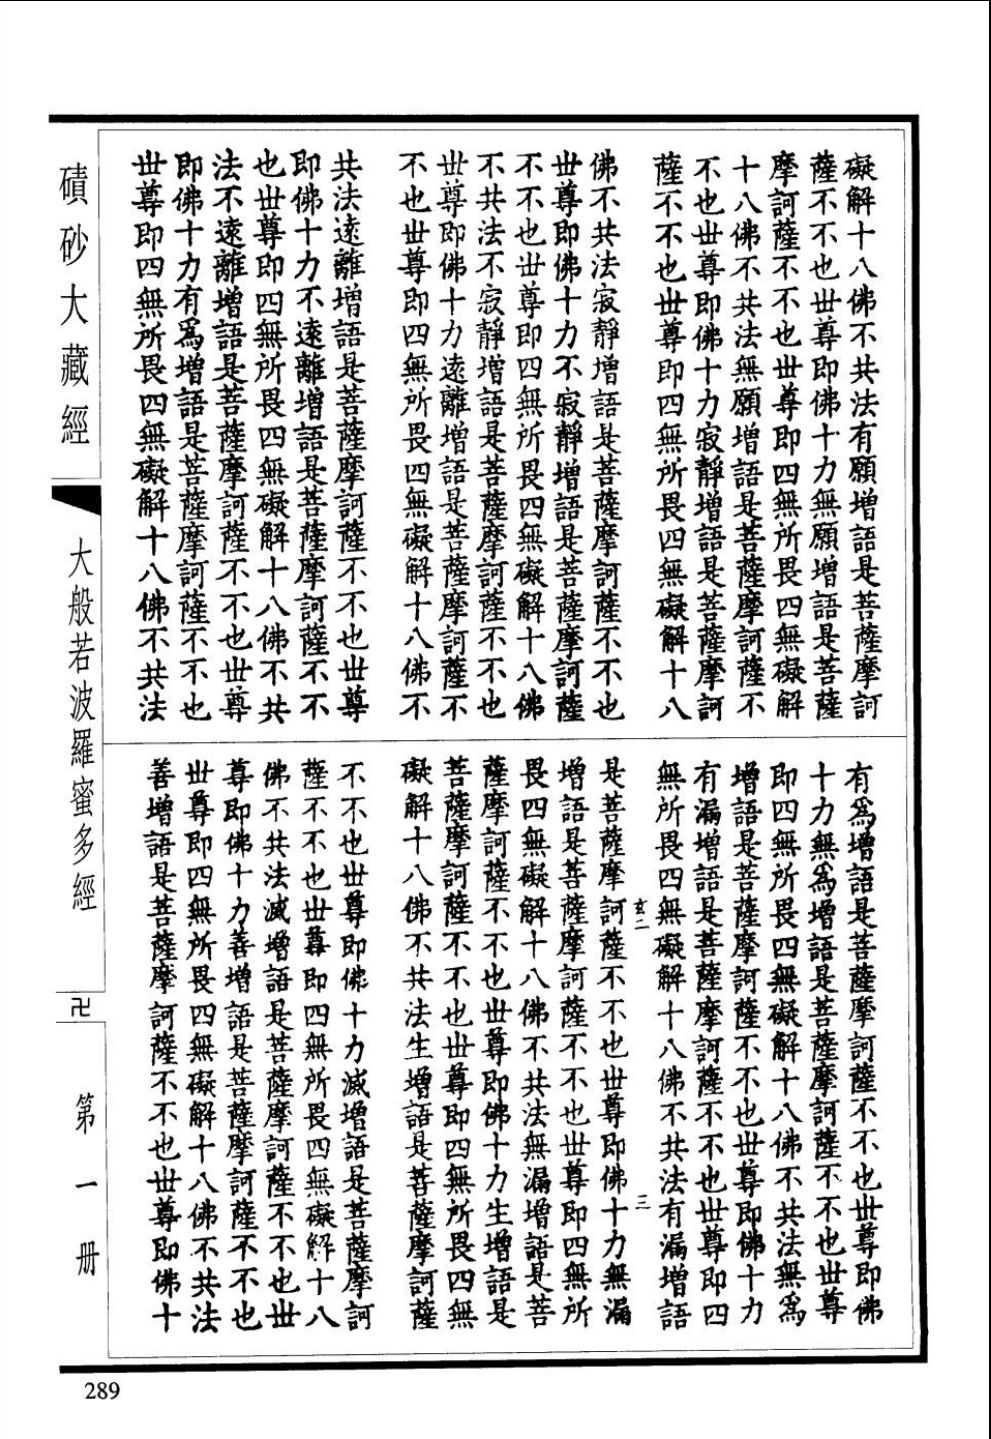 礙解十八佛不共法有願增語是菩薩摩訶
薩不不也世尊即佛十力無願增語是菩薩
摩訶薩不不也世尊即四無所畏四無礙解
十八佛不共法無願增語是菩薩摩訶薩不
不也世尊即佛十力寂靜增語是菩薩摩訶
薩不不也世尊即四無所畏四無礙解十八
佛不共法寂靜增語是菩薩摩訶薩不不也
世尊即佛十力不寂靜增語是菩薩摩訶薩
不不也世尊即四無所畏四無礙解十八佛
不共法不寂靜增語是菩薩摩訶薩不不也
世尊即佛十力遠離增語是菩薩摩訶薩不
不也世尊即四無所畏四無礙解十八佛不
共法遠離增語是菩薩摩訶薩不不也世尊
即佛十力不遠離增語是菩薩摩訶薩不不
也世尊即四無所畏四無礙解十八佛不共
法不遠離增語是菩薩摩訶薩不不也世尊
即佛十力有爲增語是菩薩摩訶薩不不也
世尊即四無所畏四無礙解十八佛不共法
有爲增語是菩薩摩訶薩不不也世尊即佛
十力無爲增語是菩薩摩訶薩不不也世尊
即四無所畏四無礙解十八佛不共法無爲
增語是菩薩摩訶薩不不也世尊即佛十力
有漏增語是菩薩摩訶薩不不也世尊即四
無所畏四無礙解十八佛不共法有漏增語
玄二 三
是菩薩摩訶薩不不也世尊即佛十力無漏
增語是菩薩摩訶薩不不也世尊即四無所
畏四無礙解十八佛不共法無漏增語是菩
薩摩訶薩不不也世尊即佛十力生增語是
菩薩摩訶薩不不也世尊即四無所畏四無
礙解十八佛不共法生增語是菩薩摩訶薩
不不也世尊即佛十力滅增語是菩薩摩訶
薩不不也世尊即四無所畏四無礙解十八
佛不共法滅增語是菩薩摩訶薩不不也世
尊即佛十力善增語是菩薩摩訶薩不不也
世尊即四無所畏四無礙解十八佛不共法
善增語是菩薩摩訶薩不不也世尊即佛十
磧砂大藏經
大般若波羅蜜多經
卍
第一册
289